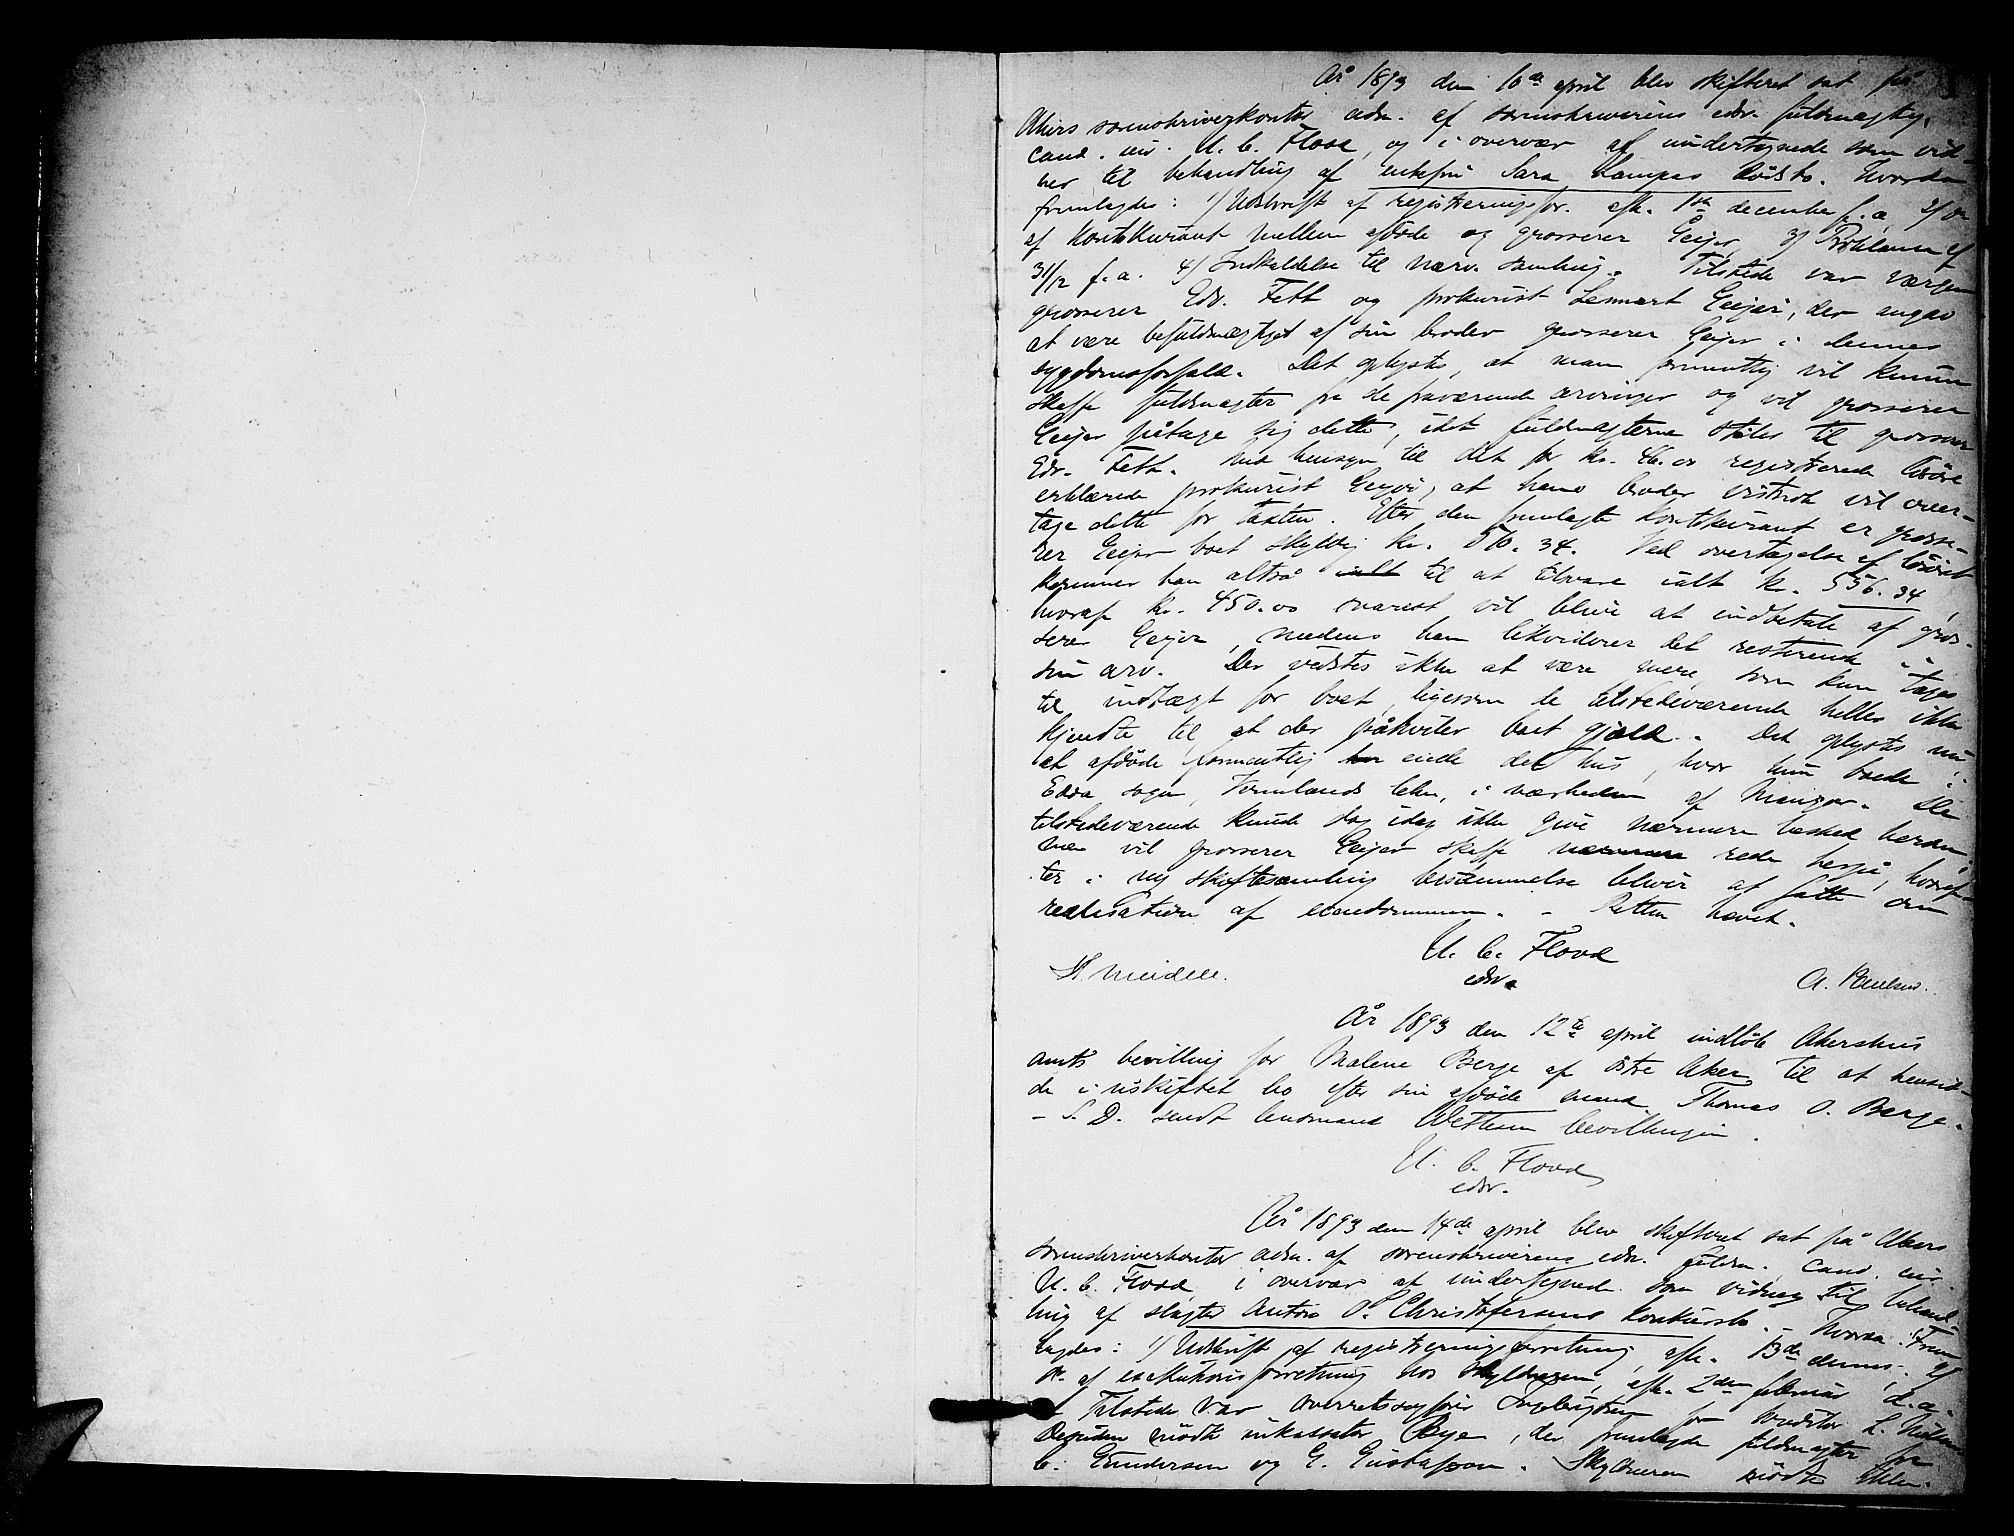 År 1893 den 10de april blev skifteret sat på
Akers sorenskriverkontor adm. af sorenskriverens edsv. fuldmægtig,
cand. jur. U. C. Flood, og i overvær af undertegnede som vid-
ner til behandling af enkefru Sara Kampes dødsbo. Hvorda
fremlagdes: 1/ Udskrift af registreringsfor. afh. 1ste december f. a. 2/ Dr
af Kontokurant mellem afdøde og grosserer Geijer 3/ Proklama af
31/12 f. a. 4/ Indkaldelse til nærv. samling. Tilstede var værgen
grosserer Edv. Fett og prokurist Lennart Geijer, der angav
at være befuldmægtiget af sin broder grosserer Geijer i dennes
sygdomsforfald. Det oplystes, at man formentlig vil kunne
skaffe fuldmagter fra de fraværende arvinger og vil grosserer
Geijer påtage sig dette, idet fuldmagterne stiles til grosserer
Edv. Fett. Med hensyn til det for kr. 46.00 registrerede løsøre
erklærede prokurist Geijer, at hans broder vistnok vil over-
tage dette for taxten. Efter den fremlagte Kontokurant er grosse-
rer Geijer boet skyldig kr. 510.34. Ved overtagelse af løsøret
kommer han altså ialt til at tilsvare ialt kr. 556.34,
hvoraf kr. 450.00 snarest vil blive at indbetale af gros-
serer Geijer, medens han likviderer det resterende i
sin arv. Der vidstes ikke at være mere, som kan tages
til indtægt for boet, ligesom de tilstedeværende heller ikke
kjendte til, at der påhviler boet gjæld. Det oplystes nu
at afdøde formentlig har eiede det hus, hvor hun boede i
Edda sogn, Vermlands lehn, i nærheden af Mangor. De
tilstedeværende kunde dog idag ikke give nærmere besked herom,
men vil grosserer Geijer skaffe nærmere rede herpå, hvoref-
ter i ny skiftesamling bestemmelse bliver at fatte om
realisation af eiendommen. - Retten hævet.
U. C. Flood
edsv.
H. Meidell. A. Paulsen.
År 1893 den 12te april indløb Akershus
amts bevilling for Malene Berge af østre Aker til at hensid-
de i uskiftet bo efter sin afdøde mand Thomas O. Berge.
- S. D. sendt lensmand Wettesen bevillingen.
U. C. Flood
edsv.
År 1893 den 14de april blev skifteret sat på Akers
sorenskriverkontor adm. af sorenskriverens edsv. fuldm. cand. jur.
U. C. Flood, i overvær af undertegnede som vidner til behand-
ling af slagter Anton P. Christofersens konkursbo. - Hvorda Frem-
lagdes: 1/ Udskrift af registreringsforretning, afh. 13de dennes. 2/
Dr. af exekutionsforretning hos skyldneren, afh. 2den februar d. a.
Tilstede var overretssagfører Ingebrigtsen for kreditor L. Nielsen
Desuden mødte inkassator Bye, der fremlagde fuldmagter fra
C. Gundersen og G. Gustafson. Skyldneren mødte ikke.